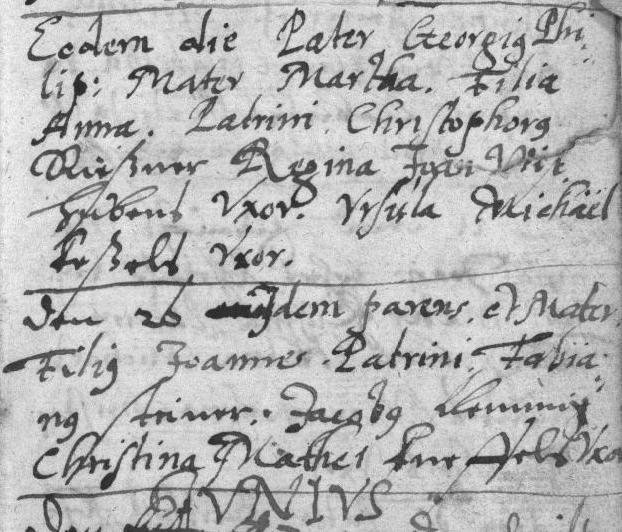 Eodem die Pater Georgius Phi-
lip: Mater Martha. Filia
Anna. Patrini. Christophorus
Rießner Regina Joan Veit
hubens Vxor. Vrsula Michaël
keßels Vxor.
den 26 eiusdem parens. et Mater.
Filius Joannes. Patrini. Fabia-
nus steiner. Jacobus
Christina Mathei Vxor
IVNIVS